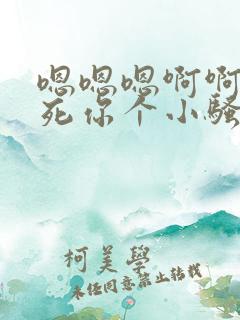 嗯嗯嗯啊啊
死你个小骚
柯美學
未经同意禁止转载